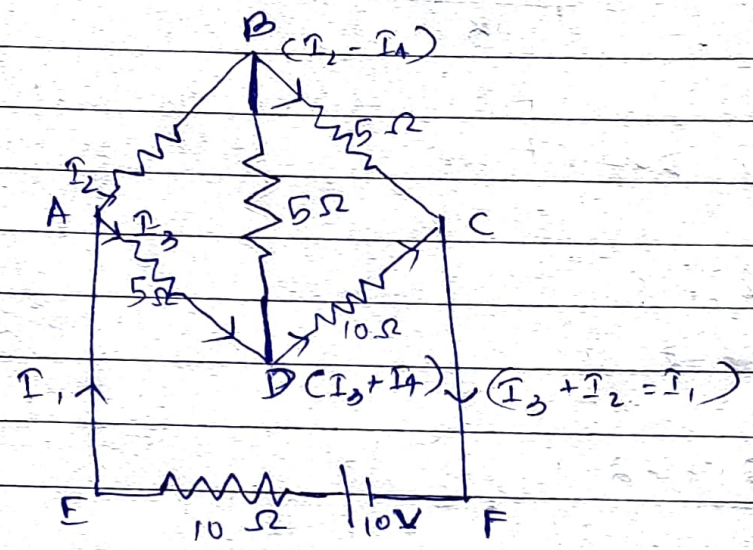 B
(I₂ - I₄)
5 Ω
I₂
A
I₃
5 Ω
C
5 Ω
10 Ω
I₁
D (I₃ + I₄)
(I₃ + I₂ = I₁)
E
10 Ω
10V
F